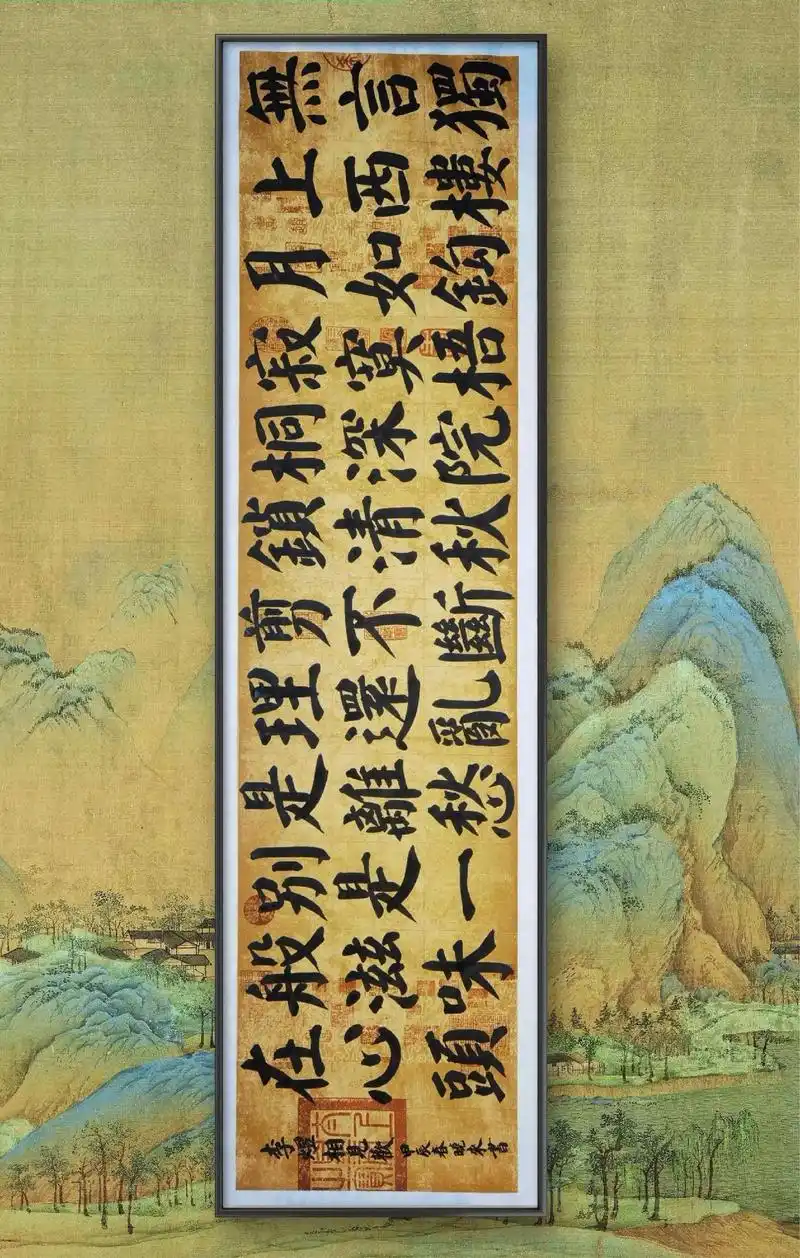 無言獨
上西樓
月如鉤
寂寞梧
桐深院
鎖清秋
剪不斷
理還亂
是離愁
別是一
般滋味
在心頭
李煜相見歡 甲辰春晚來書